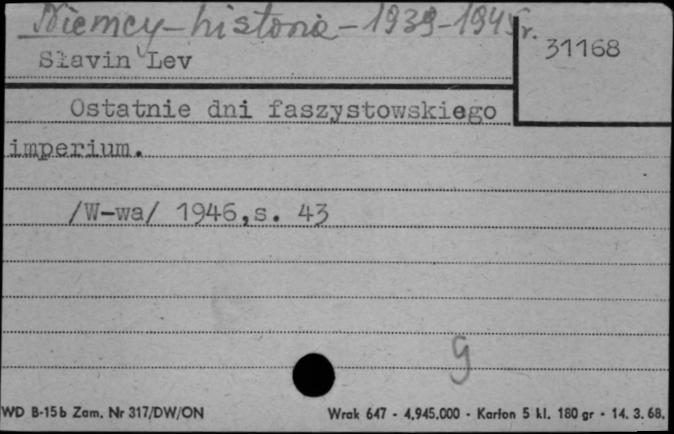 Niemcy-historia-1939-1945r.
31168
Slavin Lev
Ostatnie dni faszystowskiego
imperium.
/W-wa/ 1946,s. 43
g
WD B-15b Zam. Nr 317/DW/ON
Wrak 647 - 4.945.000 - Karton 5 kl. 180 gr - 14. 3. 68.